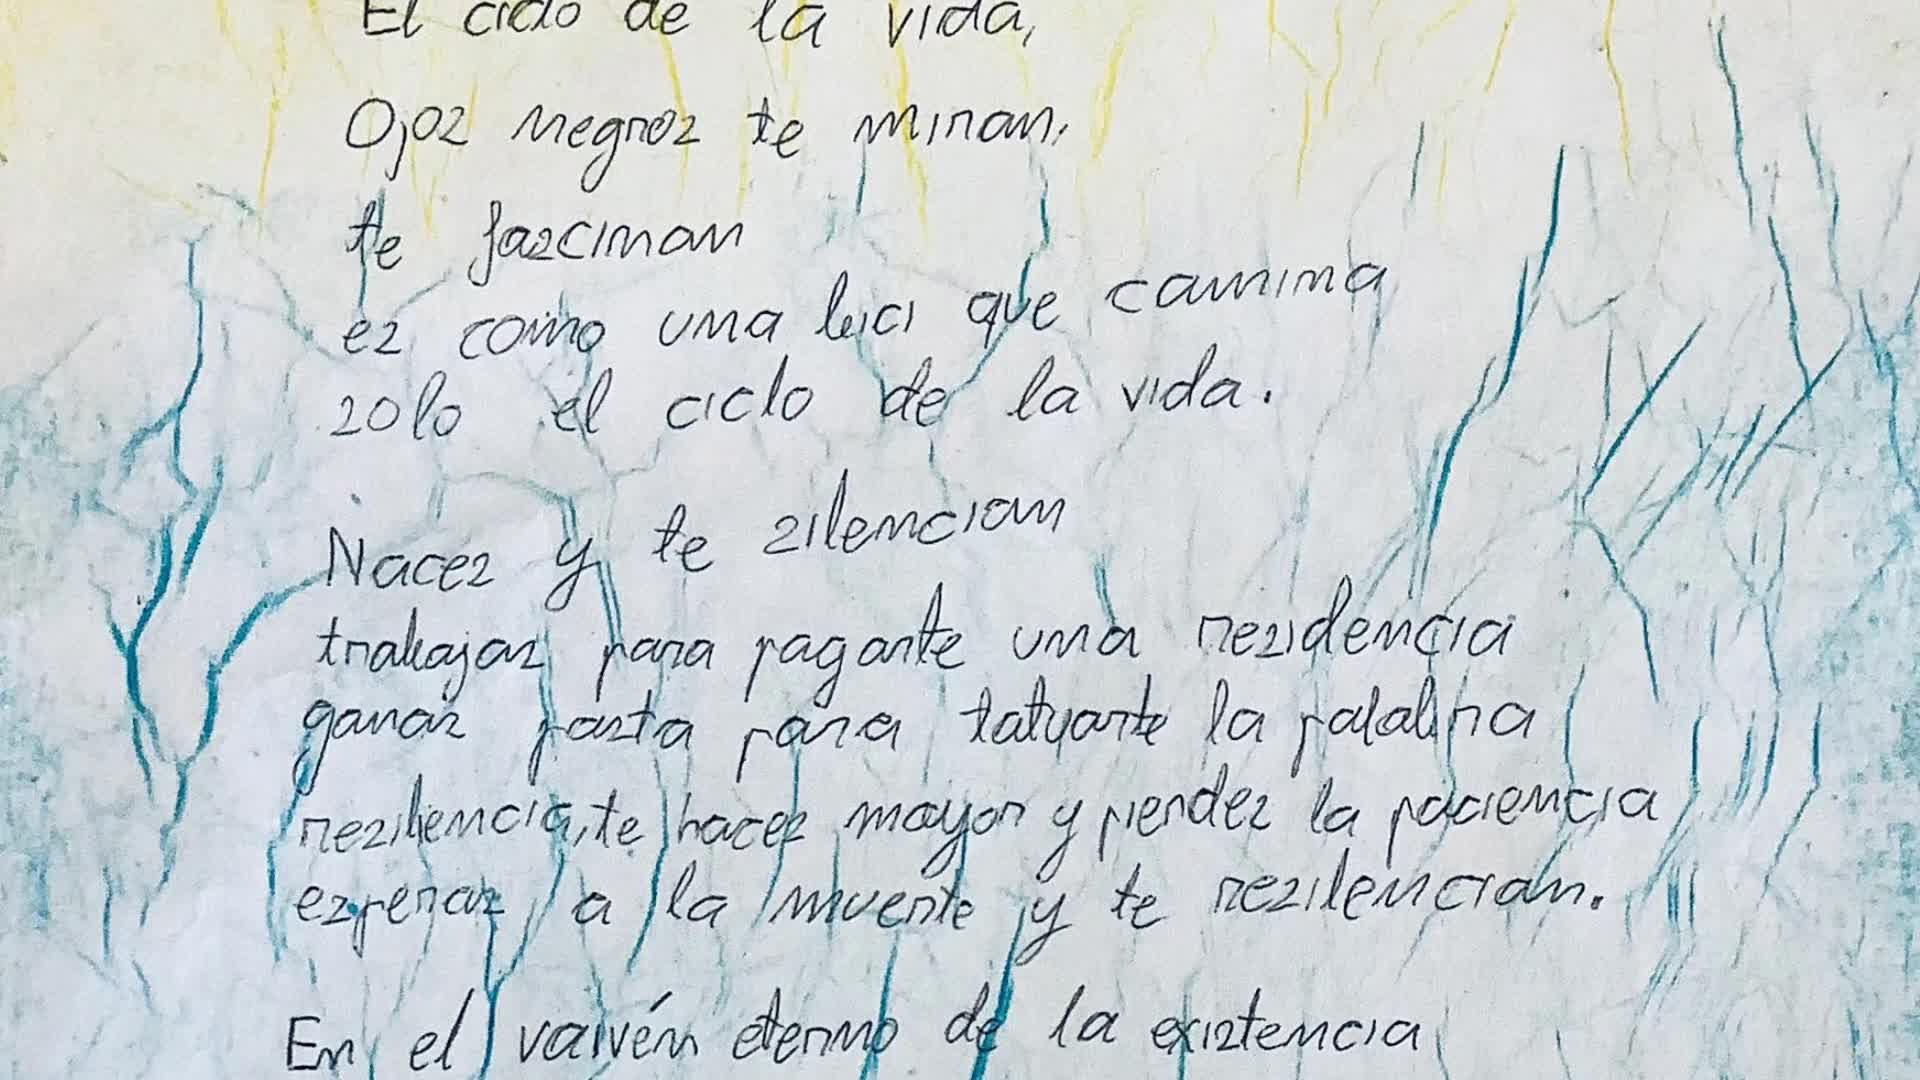 El ciclo de la vida,
Ojoz negroz te miran,
te fazcinan
ez como una luci que camina
zolo el ciclo de la vida.
Nacez y te zilencian
trabajaz para pagarte una rezidencia
ganaz pazta para tatuarte la palabra
reziliencia, te hacez mayor y pierdez la paciencia
ezperaz a la muerte y te rezilencian.
En el vaivén eterno de la existencia